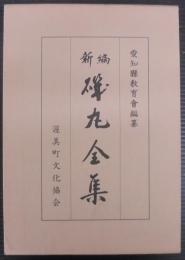 愛知縣教育會編纂
新編
磯丸全集
渥美町文化協会